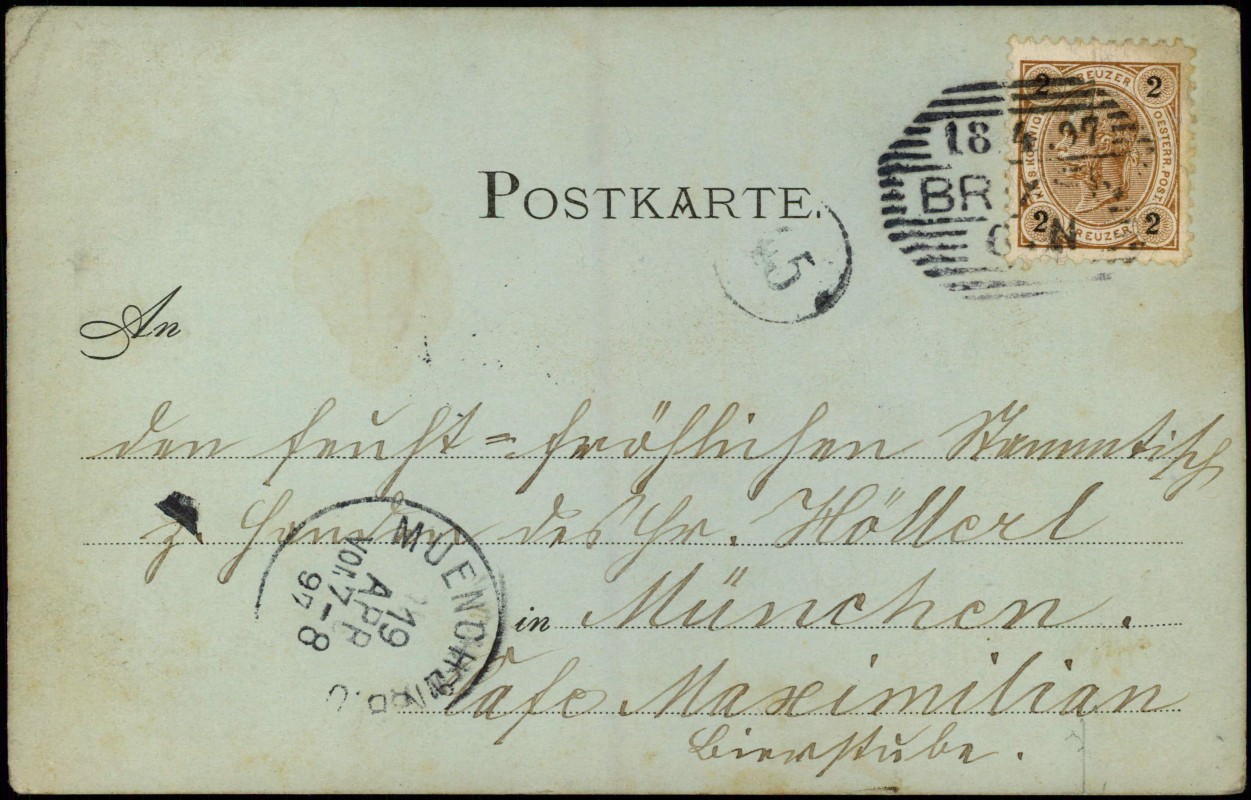 POSTKARTE.
2 KREUZER 2
OESTERR. POST
2 KREUZER 2
18 4 97
BRIXEN
6 N
45
An
den feucht=fröhlichen Stammtisch
z. Handen des Hr. Höllerl
in München.
Cafe Maximilian
Bierstube.
MUENCHEN
19
APR
VOR. 7-8
97